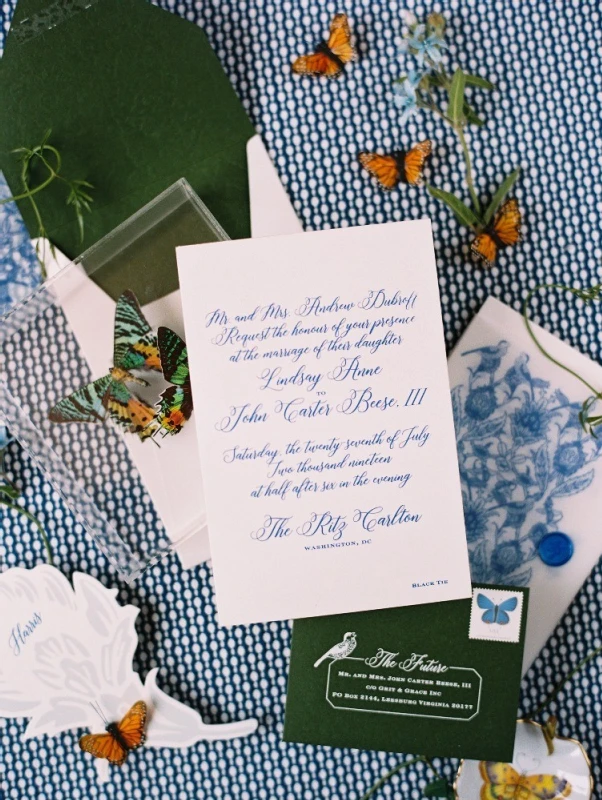 Mr. and Mrs. Andrew Dubroff
Request the honour of your presence
at the marriage of their daughter
Lindsay Anne
TO
John Carter Beese, III
Saturday, the twenty seventh of July
Two thousand nineteen
at half after six in the evening
The Ritz Carlton
WASHINGTON, DC
BLACK TIE
Harris
The Future
MR. AND MRS. JOHN CARTER BEESE, III
C/O GRIT & GRACE INC
PO BOX 2144, LEESBURG VIRGINIA 20177